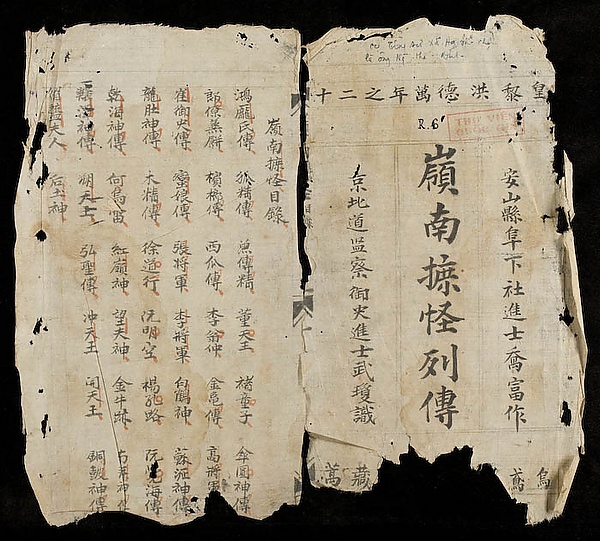 皇黎洪德萬年之二十
R.6
THƯ VIỆN
QUỐC
安山縣阜下社進士喬富作
嶺南摭怪列傳
京北道监察御史進士武瓊識
烏鳶
藏萬
嶺南摭怪目錄
鴻龐氏傳 狐精傳 魚傳精 董天王 褚童子 傘圓神傳
郎僚蒸餅 檳榔傳 西瓜傳 李翁仲 金亀傳 高將軍
崔御史傳 蠻娘傳 張將軍 李將軍 白鶴神 蘇瀝神傳
龍肚神傳 木精傳 徐道行 阮明空 楊孔路 阮海傳
乾海神傳 何烏雷 紅嶺神 望天神 金牛跡 神傳
海神傳 朔天王 弘聖傳 冲天王 開天王 銅鼓神傳
藍天人 后土神